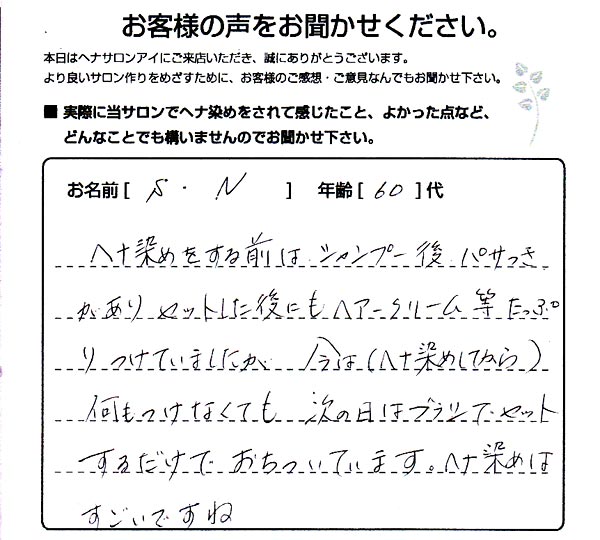 お客様の声をお聞かせください。
本日はヘナサロンアイにご来店いただき、誠にありがとうございます。
より良いサロン作りをめざすために、お客様のご感想・ご意見なんでもお聞かせ下さい。
■ 実際に当サロンでヘナ染めをされて感じたこと、よかった点など、
どんなことでも構いませんのでお聞かせ下さい。
お名前 [ S ・ N ] 年齢 [ 60 ] 代
ヘナ染めをする前は シャンプー後 パサつき
があり セットした後にもヘアークリーム等 たっぷ
りつけていましたが 今は(ヘナ染めしてから)
何もつけなくても 次の日はブラシでセット
するだけで おちついています。ヘナ染めは
すごいですね